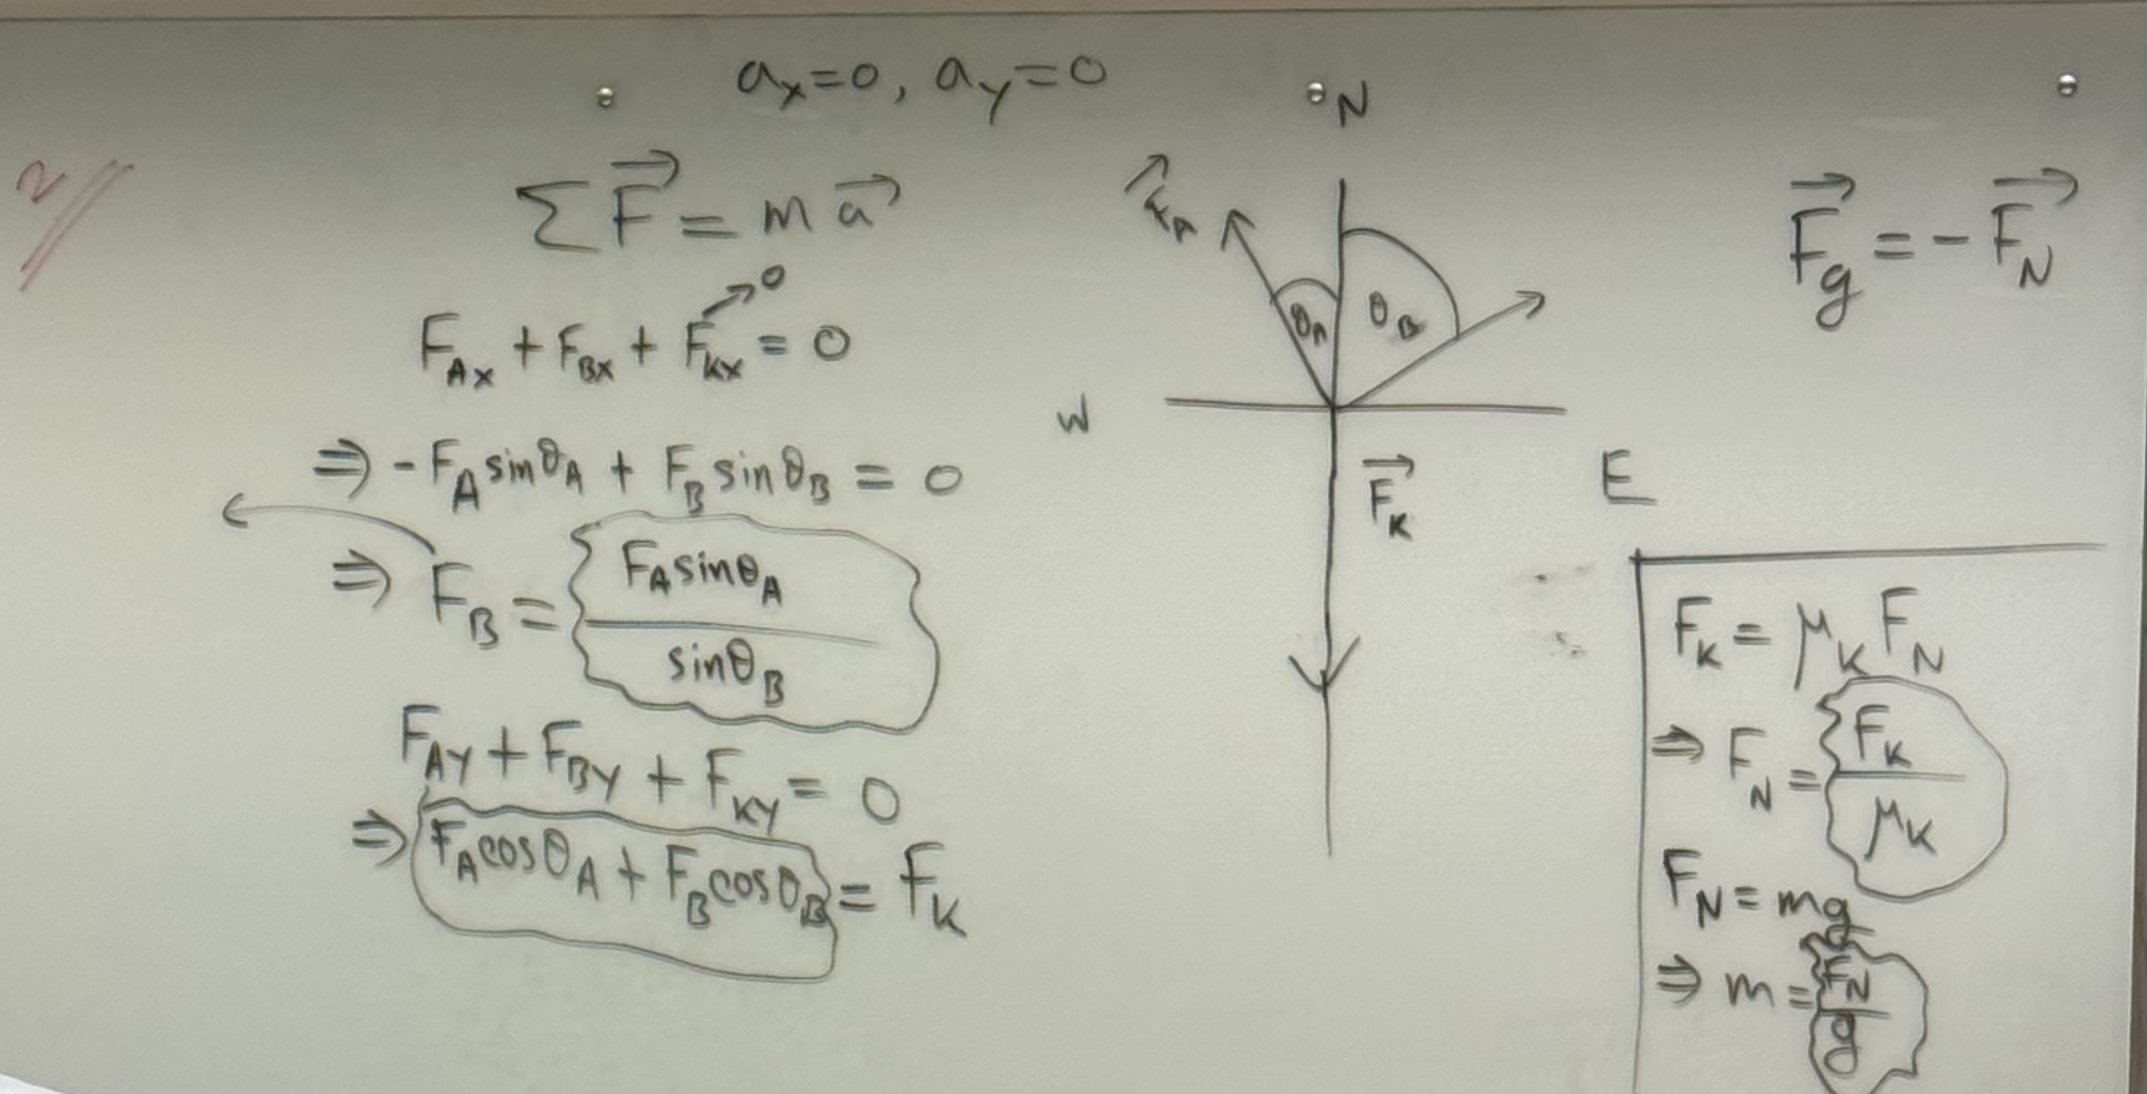 aₓ=0, a_y=0
2//
ΣF⃗ = ma⃗
F_Ax + F_Bx + F_Kx = 0
→0
⇒ -F_A sinθ_A + F_B sinθ_B = 0
⇒ F_B = F_A sinθ_A / sinθ_B
F_AY + F_BY + F_KY = 0
⇒ F_A cosθ_A + F_B cosθ_B = F_K
N
F⃗_A
θ_A
θ_B
W
E
F⃗_K
F⃗_g = -F⃗_N
F_K = μ_K F_N
⇒ F_N = F_K / μ_K
F_N = mg
⇒ m = F_N / g